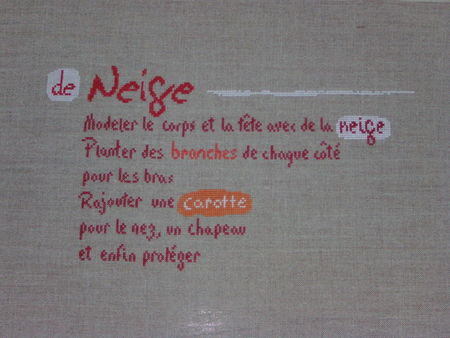 de Neige
Modeler le corps et la tête avec de la neige
Planter des branches de chaque côté
pour les bras
Rajouter une carotte
pour le nez, un chapeau
et enfin protéger